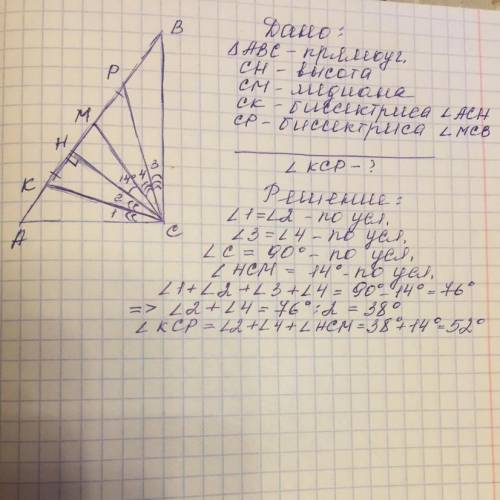 Дано:
△ABC - прямоуг.
CH - высота
CM - медиана
CK - биссектриса ∠ACH
CP - биссектриса ∠MCB
∠KCP - ?
Решение:
∠1=∠2 - по усл.
∠3=∠4 - по усл.
∠C = 90° - по усл.
∠HCM = 14° - по усл.
∠1+∠2+∠3+∠4 = 90°-14° = 76°
=> ∠2+∠4 = 76°:2 = 38°
∠KCP = ∠2+∠4+∠HCM = 38°+14° = 52°
B
P
M
H
K
A
C
14°
4
3
2
1